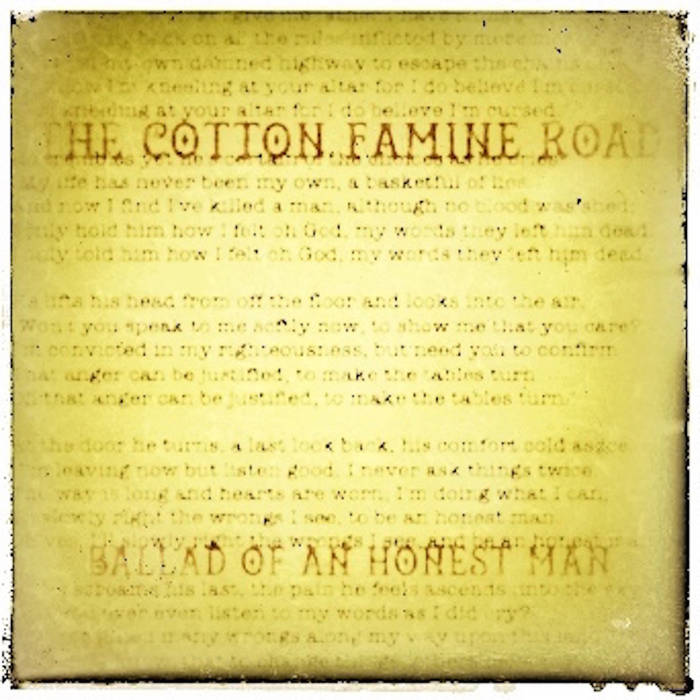 give me
back on all the rules inflicted by
own damned highway to escape the
kneeling at your altar for I do believe I'm cursed
kneeling at your altar for I do believe I'm cursed.
THE COTTON FAMINE ROAD
My life has never been my own, a basketful of lies
and now I find I've killed a man, although no blood was shed;
only hold him how I felt oh God, my words they left him dead
only told him how I felt oh God, my words they left him dead.
lifts his head from off the floor and looks into the air,
Won't you speak to me softly now, to show me that you care?
convicted in my righteousness, but need you to confirm
that anger can be justified, to make the tables turn
that anger can be justified, to make the tables turn."
the door he turns, a last look back, his comfort cold as ice
I'm leaving now but listen good, I never ask things twice
way is long and hearts are worn, I'm doing what I can,
slowly right the wrongs I see, to be an honest man
slowly right the wrongs I see, and be an honest
BALLAD OF AN HONEST MAN
screams his last, the pain he feels ascends into the
ever even listen to my words as I did cry?
many wrongs along my way upon this